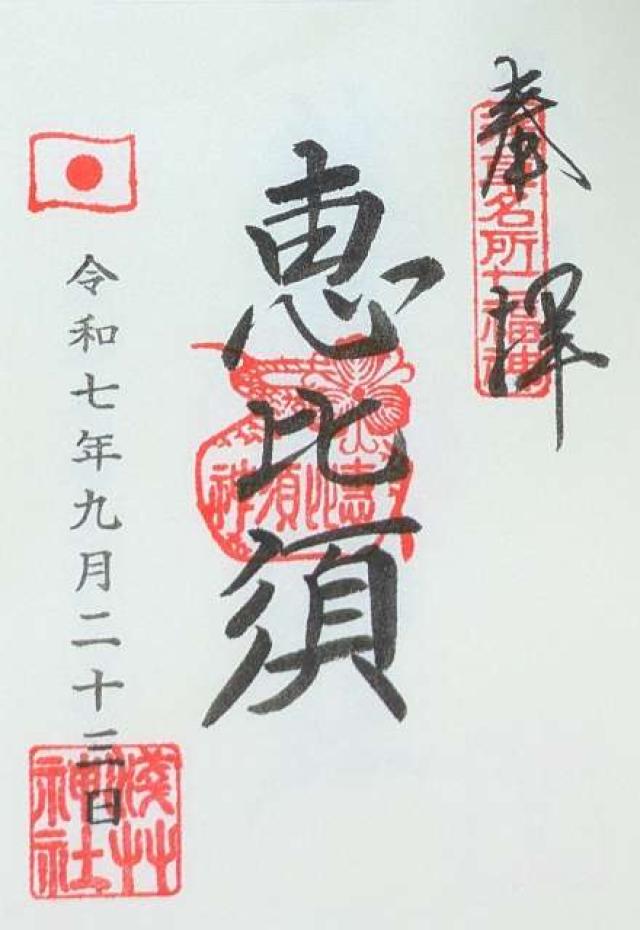 奉拝
浅草名所七福神
恵比須
恵比須神
令和七年九月二十三日
浅草
神社